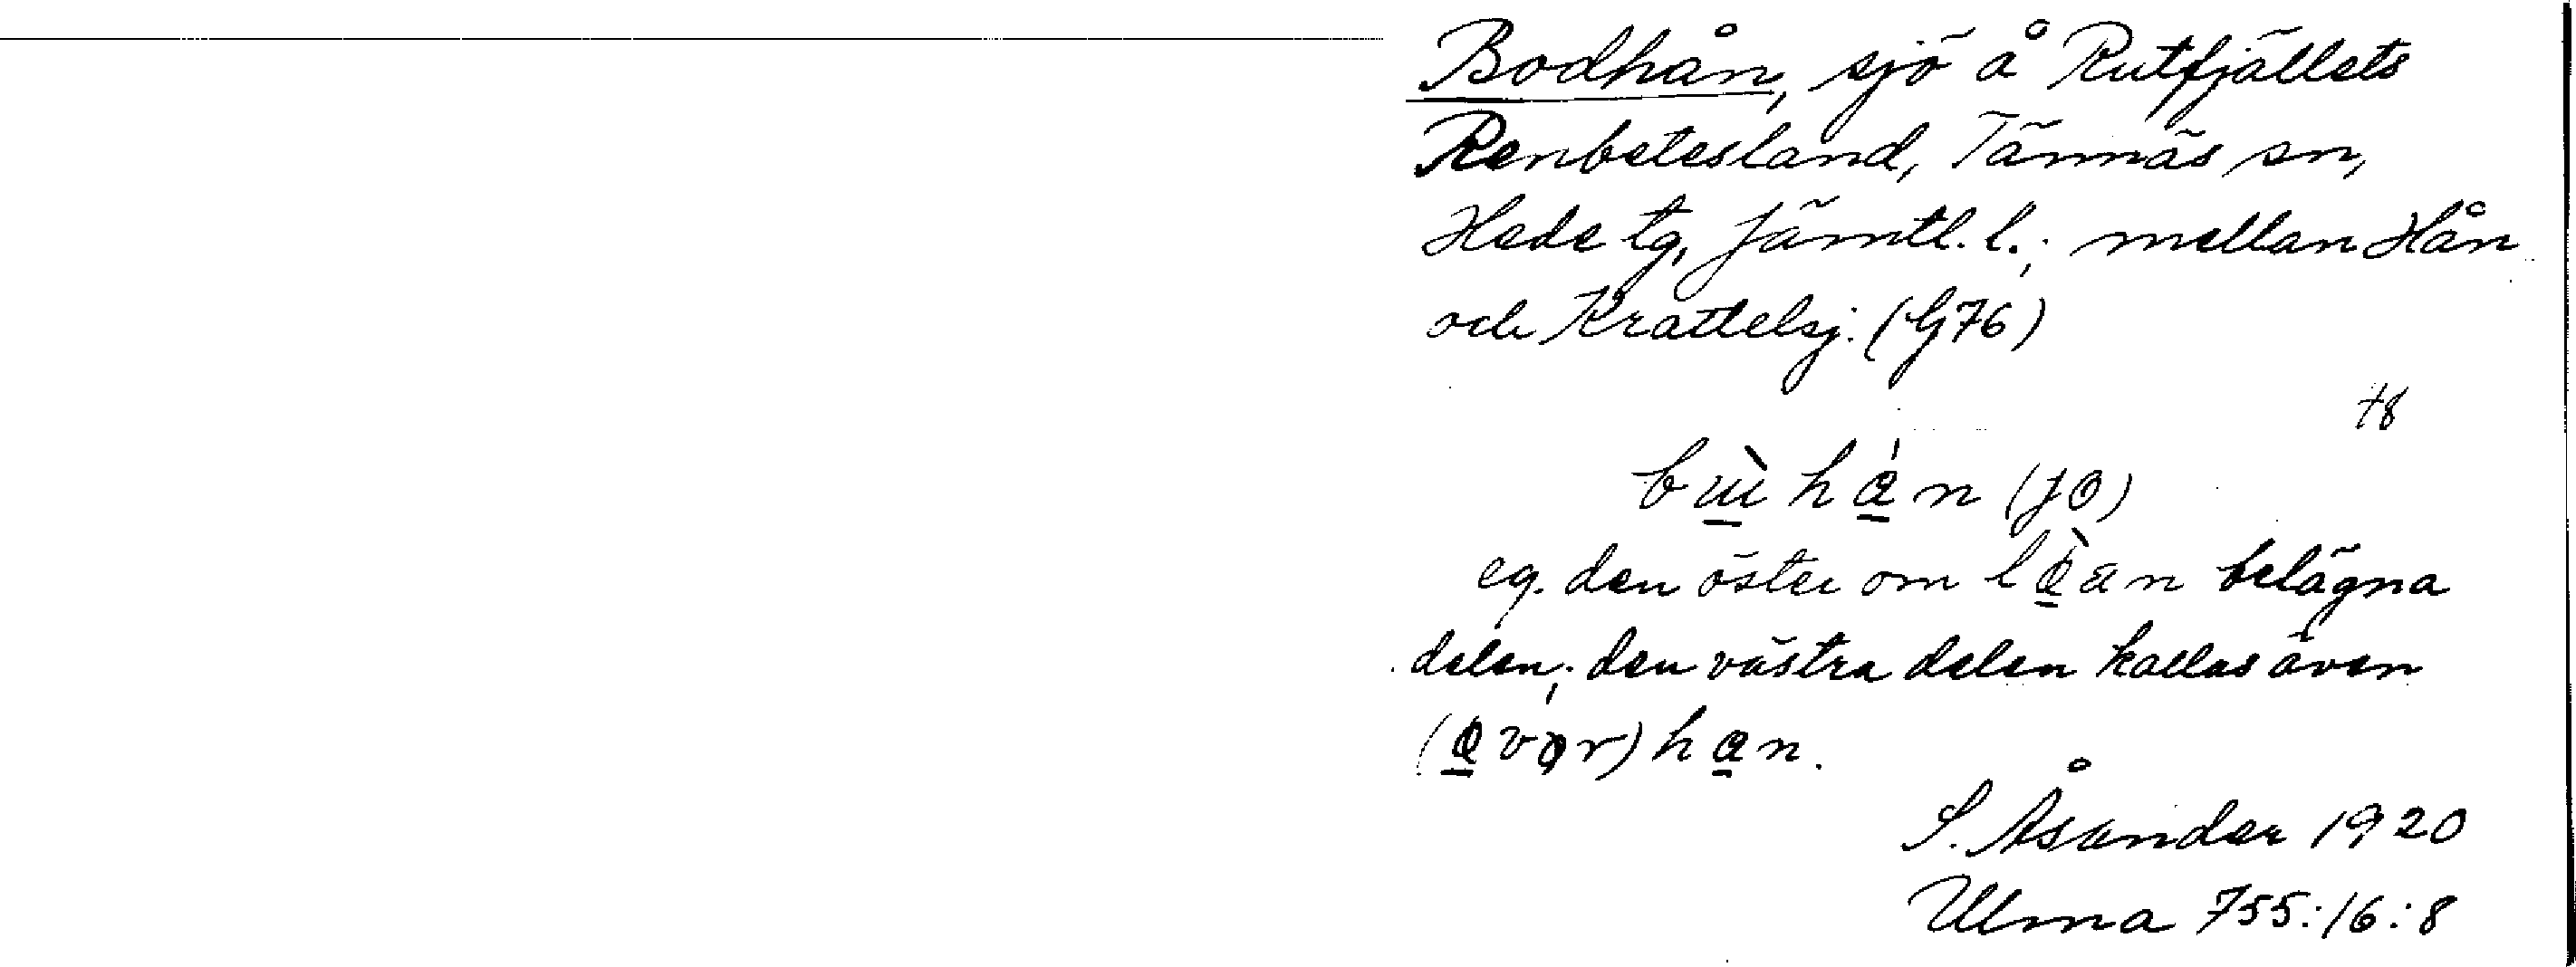 Bodhån, sjö å Rutfjällets
Renbetesland, Tännäs sn,
Hede tg, Jämtl. l.; mellan Hån
och Krattelsj. (G76)
78
(JO)
eg. den öster om belägna
delen; den västra delen kallas även
S. Åsander 1920
Ulma 755:16:8